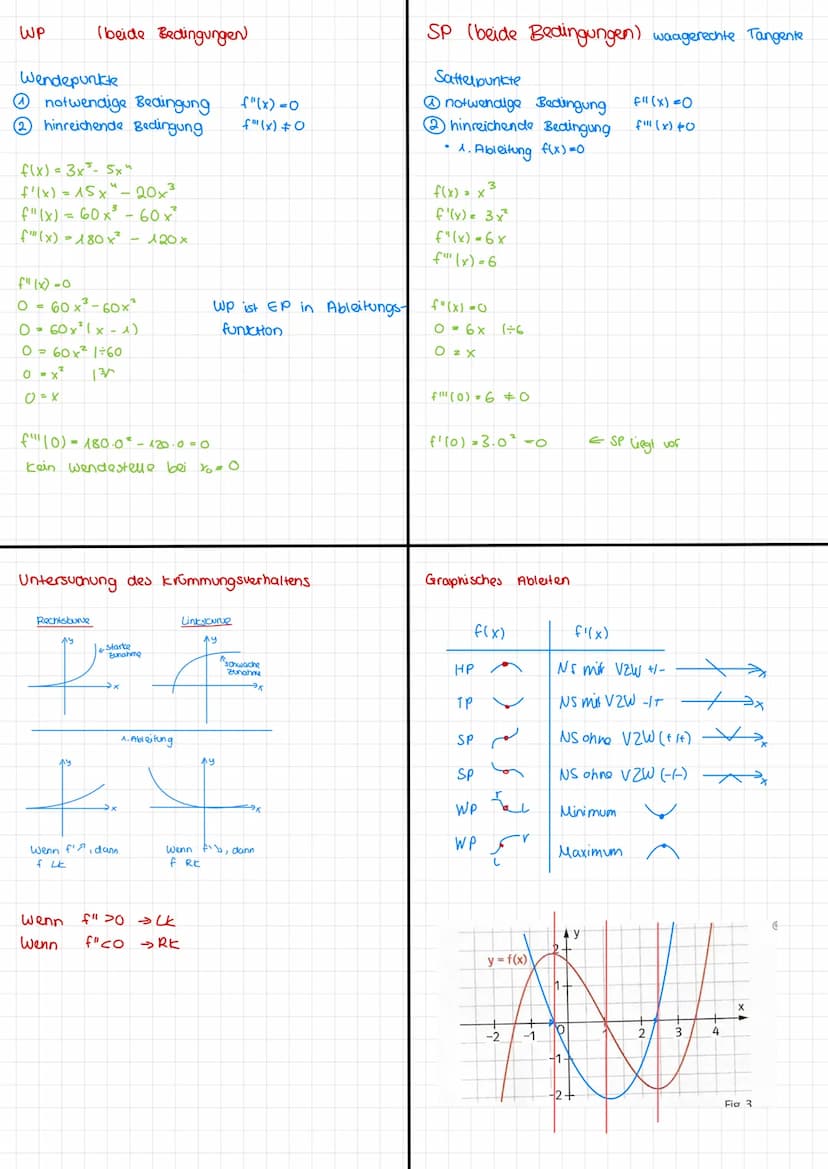 WP (beide Bedingungen)
Wendepunkte
① notwendige Bedingung f''(x) = 0
② hinreichende Bedingung f'''(x) ≠ 0
f(x) = 3x⁵ - 5x⁴
f'(x) = 15x⁴ - 20x³
f''(x) = 60x³ - 60x²
f'''(x) = 180x² - 120x
f''(x) = 0
0 = 60x³ - 60x²
0 = 60x²(x - 1)
0 = 60x² |÷60
0 = x²
0 = x
WP ist EP in Ableitungs-
funktion
f'''(0) = 180·0² - 120·0 = 0
Kein Wendestelle bei x₀ = 0
SP (beide Bedingungen) waagerechte Tangente
Sattelpunkte
① notwendige Bedingung f''(x) = 0
② hinreichende Bedingung f'''(x) ≠ 0
• 1. Ableitung f(x) = 0
f(x) = x³
f'(x) = 3x²
f''(x) = 6x
f'''(x) = 6
f''(x) = 0
0 = 6x |÷6
0 = x
f'''(0) = 6 ≠ 0
f'(0) = 3·0² = 0 ← SP liegt vor
Untersuchung des Krümmungsverhaltens
Rechtskurve Linkskurve
y ← starke Zunahme x
y schwache Zunahme x
1. Ableitung
y x
y x
Wenn f'↗, dann
f LK
Wenn f'↘, dann
f RK
Wenn f'' > 0 → LK
Wenn f'' < 0 → RK
Graphisches Ableiten
f(x) f'(x)
HP NS mit VZW +/- x
TP NS mit VZW -/+ x
SP NS ohne VZW (+/+) x
SP NS ohne VZW (-/-) x
WP r L Minimum
WP L r Maximum
y = f(x)
y
x
2
1
-2 -1 0 1 2 3 4
-1
-2
Fig 3